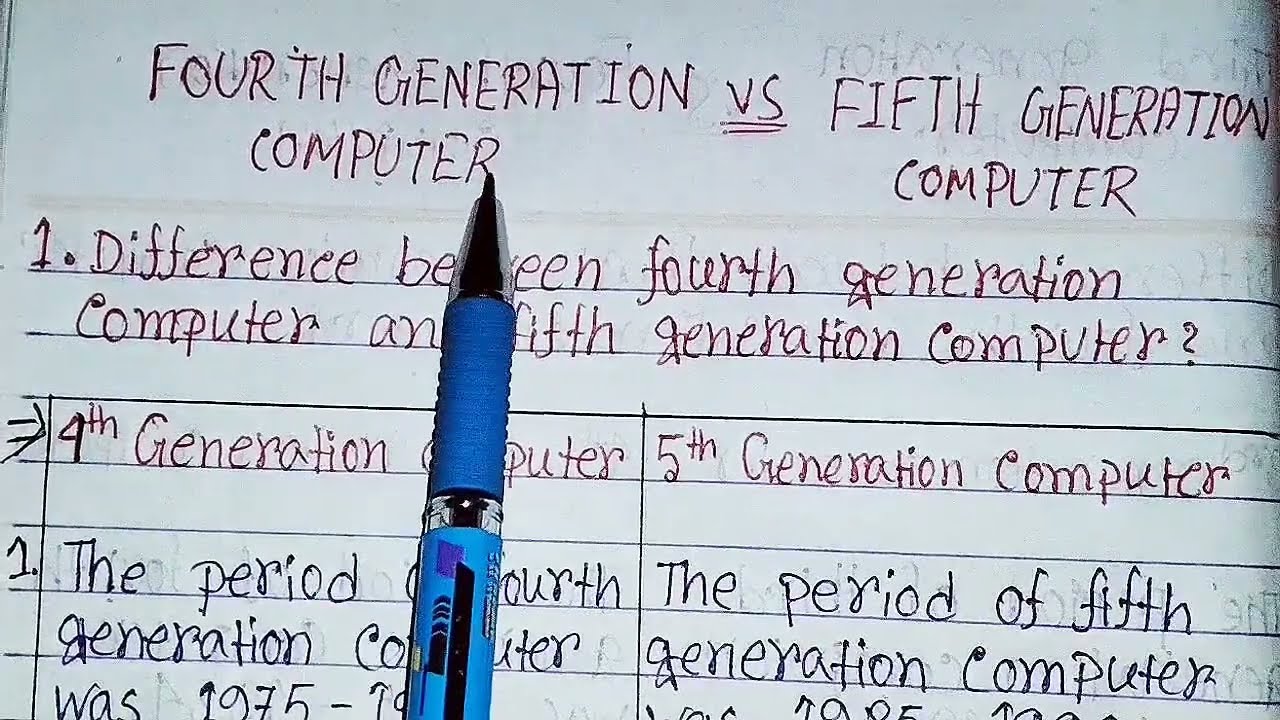 FOURTH GENERATION VS FIFTH GENERATION
COMPUTER COMPUTER
1. Difference between fourth generation
Computer and fifth generation Computer?
⇒ 4th Generation Computer 5th Generation Computer
1. The period fourth The period of fifth
generation Computer generation Computer
was 1975 -